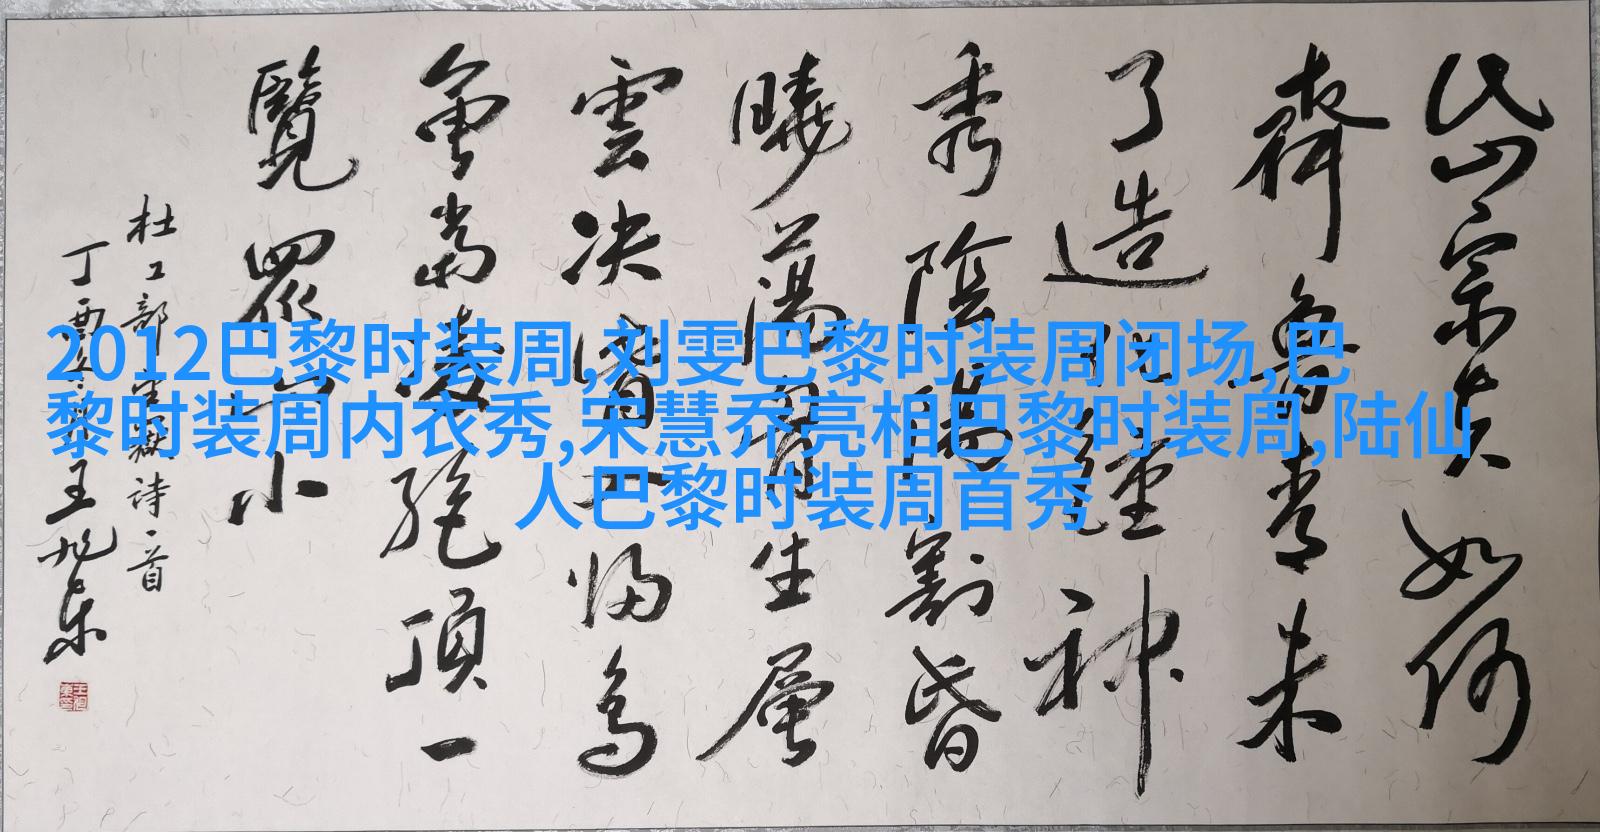 岱宗夫如何
齊魯青未
了造化鍾神
秀陰陽割昏
曉蕩胸生層
雲决眥入歸鳥
會當凌絕頂一
覽眾山小
杜工部望嶽詩一首
丁酉冬王旭东
2012巴黎时装周,刘雯巴黎时装周闭场,巴
黎时装周内衣秀,宋慧乔亮相巴黎时装周,陆仙
人巴黎时装周首秀